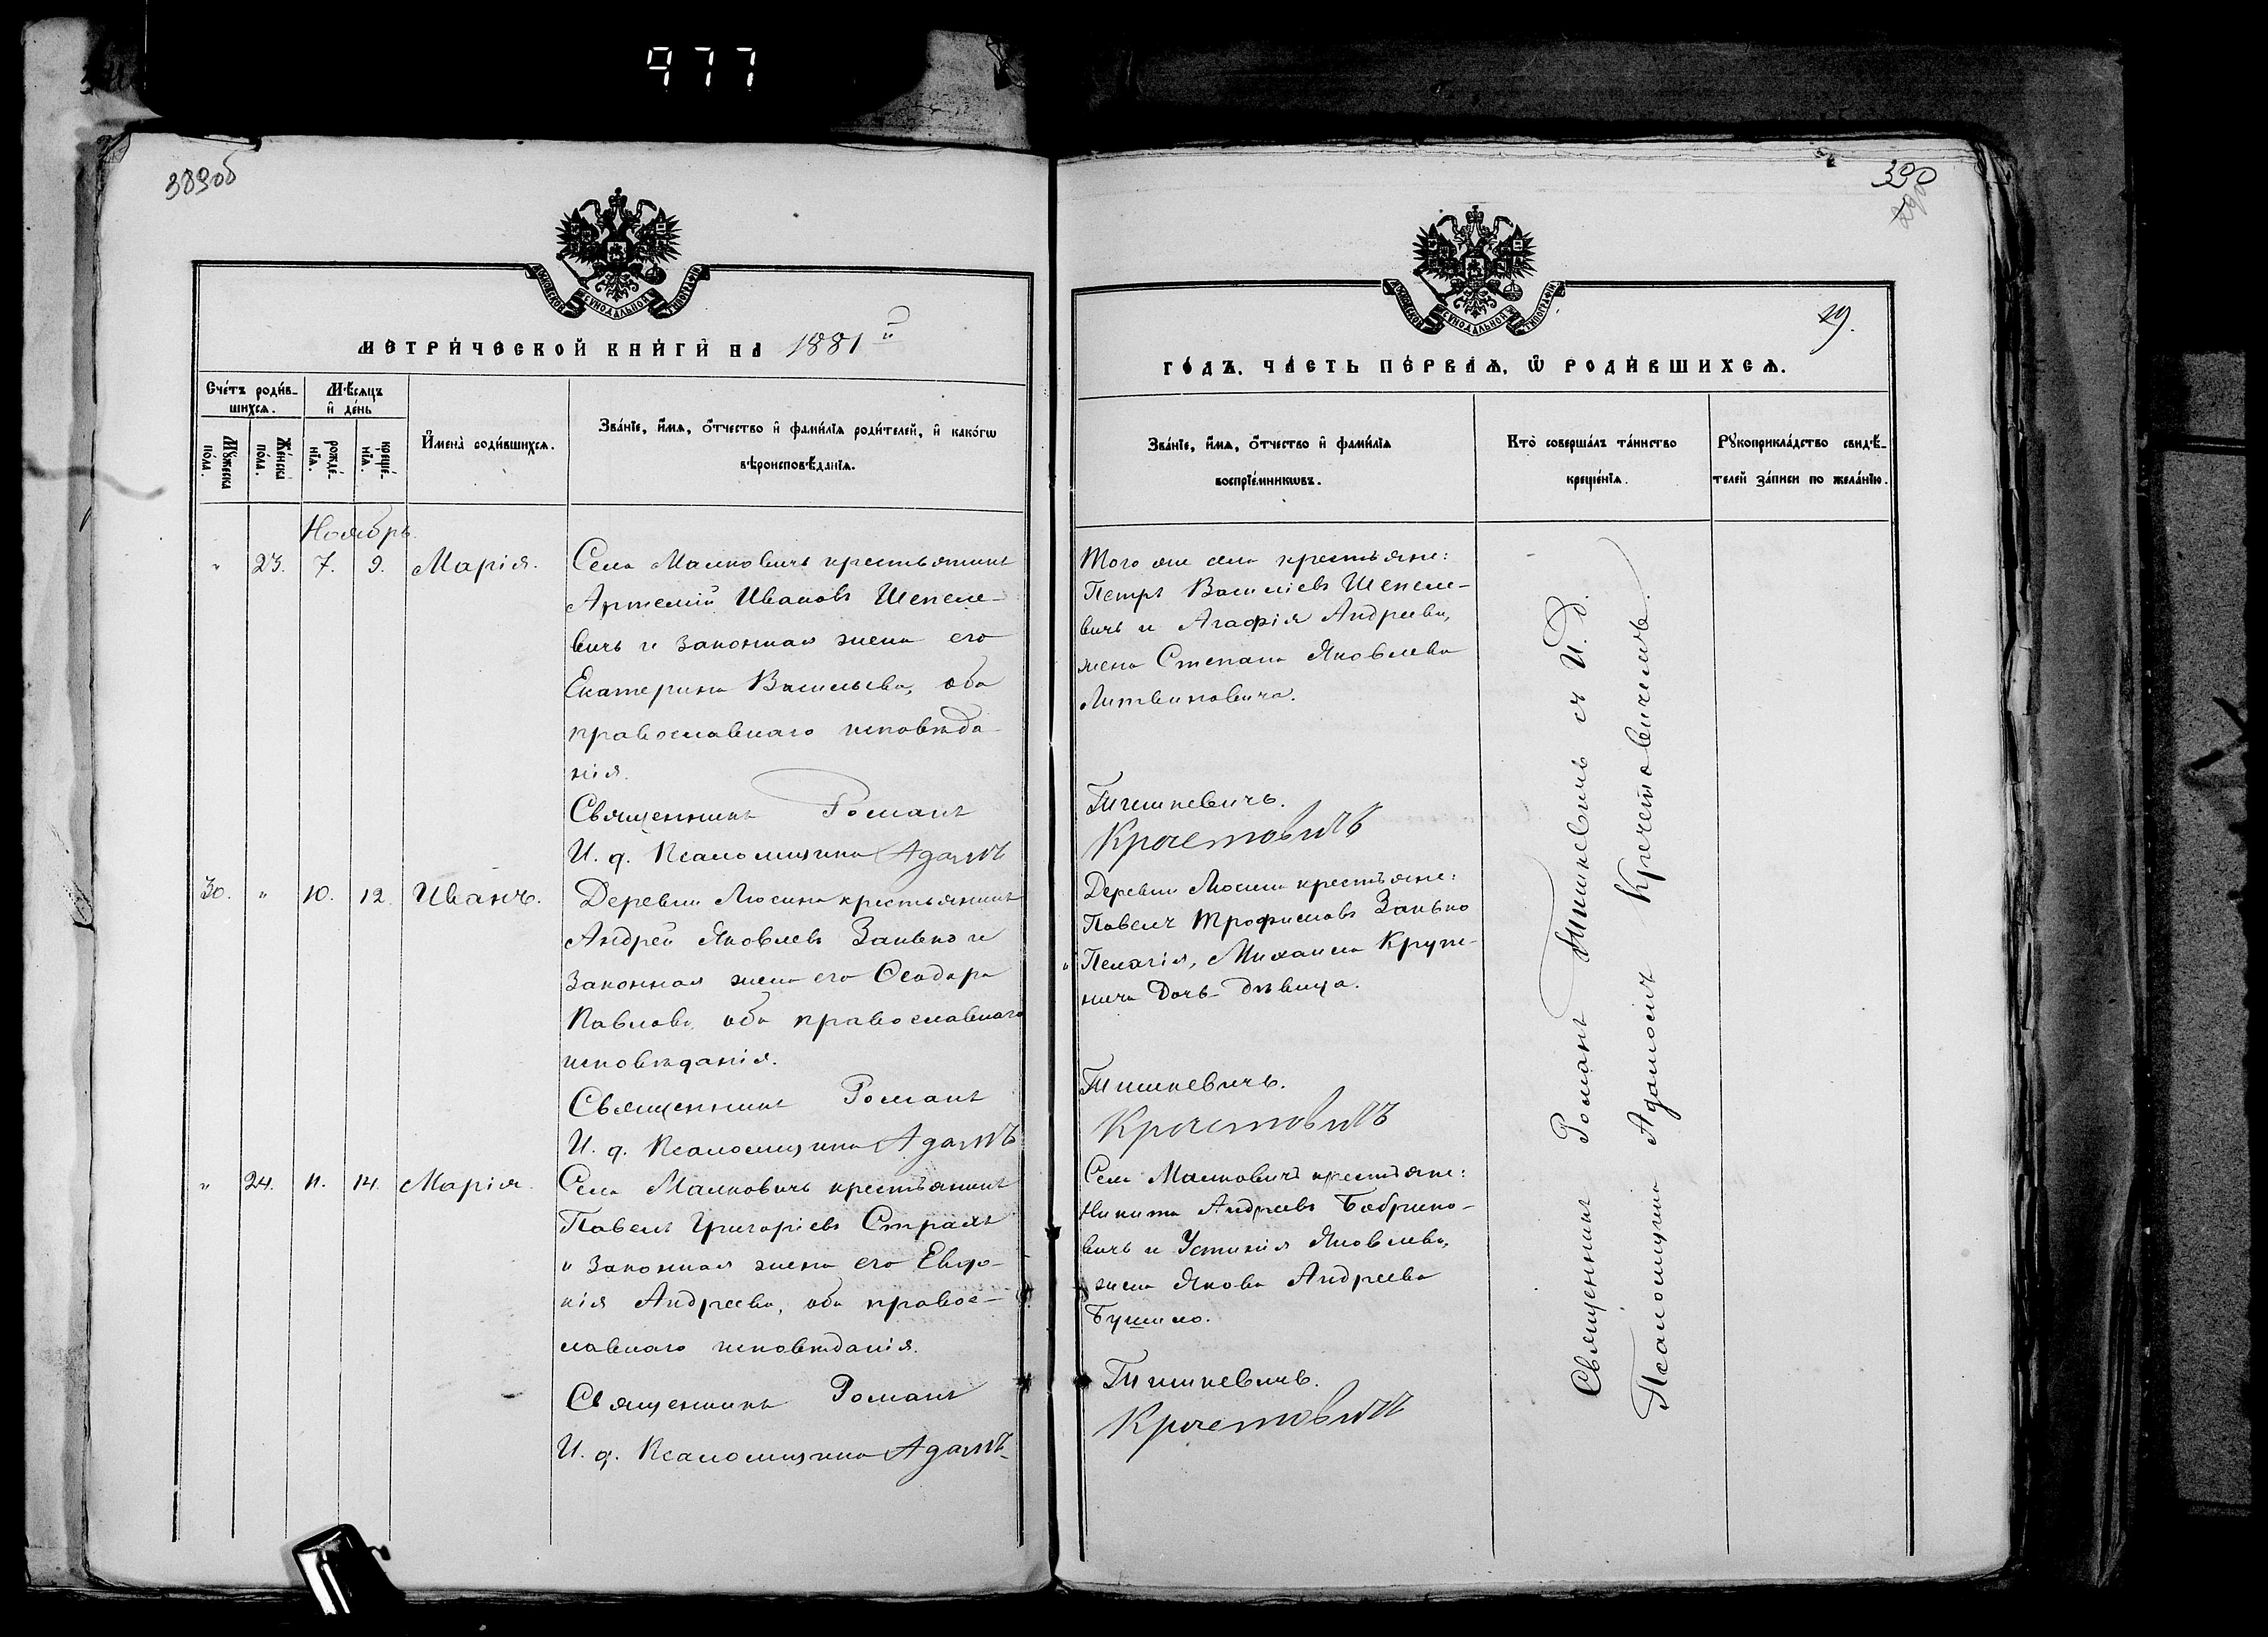 977
389об
МЕТРИЧЕСКОЙ КНИГИ НА 1881й
Счетъ родив-
шихся.
Мѣсяцъ
и день
Мужеска
пола.
Женска
пола.
рожде-
нїя.
креще-
нїя.
Имена родившихся.
Званїе, имя, отчество и фамилїя родителей, и какогѡ
вѣроисповѣданїя.
Ноябрь.
" 23. 7. 9. Марія. Села Малковичъ крестьянинъ
Артемій Ивановъ Шепеле-
вичъ и законная жена его
Екатерина Васильева, оба
православнаго исповѣда-
нія.
Священникъ Романъ
И. д. Псаломщика Адамъ
30. " 10. 12. Иванъ. Деревни Люсина крестьянинъ
Андрей Яковлевъ Занько и
законная жена его Ѳеодора
Павлова, оба православнаго
исповѣданія.
Священникъ Романъ
И. д. Псаломщика Адамъ
" 24. 11. 14. Марія. Села Малковичъ крестьянинъ
Павелъ Григоріевъ Страхъ
и законная жена его Евдо-
кія Андреева, оба правос-
лавнаго исповѣданія.
Священникъ Романъ
И. д. Псаломщика Адамъ
390
МОСКОВСКОЙ СѴНОДАЛЬНОЙ ТИПОГРАФІИ
29.
ГОДЪ. ЧАСТЬ ПЕРВАЯ, Ѡ РОДИВШИХСЯ.
Званїе, имя, отчество и фамилїя
воспрїемникѡвъ.
Кто совершалъ таинство
крещенїя.
Рукоприкладство свидѣ-
телей записи по желанїю.
Того же села крестьяне:
Петръ Василіевъ Шепеле-
вичъ и Агафія Андреева,
жена Степана Яковлева
Литвиновича.
Тишкевичъ.
Кречетовичъ
Деревни Люсина крестьяне:
Павелъ Трофимовъ Занько
и Пелагія, Михаила
дочь-дѣвица.
Тишкевичъ.
Кречетовичъ
Села Малковичъ крестьяне:
Никита Андреевъ Бобрико-
вичъ и Устинія Яковлева,
жена Якова Андреева
Бушило.
Тишкевичъ.
Кречетовичъ
Священникъ Романъ Тишкевичъ съ И. д.
Псаломщика Адамомъ Кречетовичемъ.